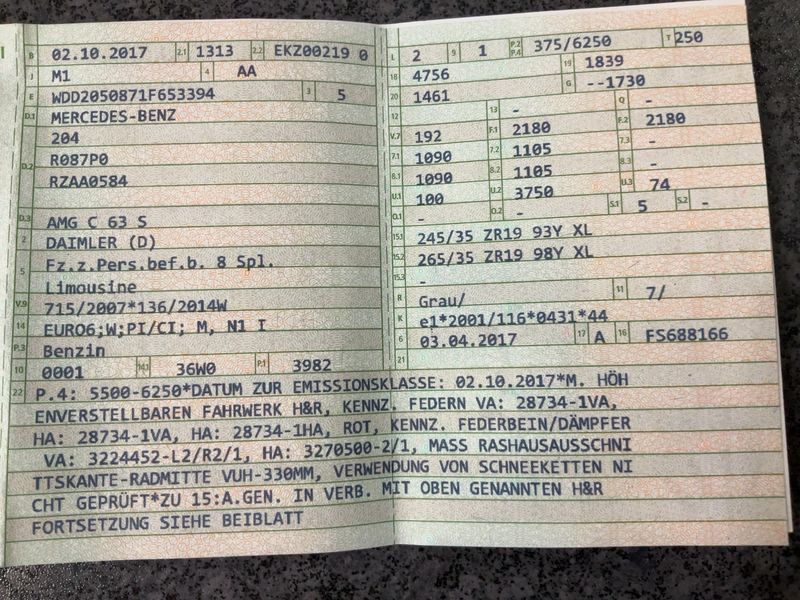 B 02.10.2017 2.1 1313 2.2 EKZ00219 0
J M1 4 AA
E WDD2050871F653394 3 5
D.1 MERCEDES-BENZ
204
D.2 R087P0
RZAA0584
D.3 AMG C 63 S
2 DAIMLER (D)
5 Fz.z.Pers.bef.b. 8 Spl.
Limousine
V.9 715/2007*136/2014W
14 EURO6;W;PI/CI; M, N1 I
P.3 Benzin
10 0001 14.1 36W0 P.1 3982
L 2 9 1 P.2 P.4 375/6250 T 250
18 4756 19 1839
20 1461 G --1730
12 13 - Q -
V.7 192 F.1 2180 F.2 2180
7.1 1090 7.2 1105 7.3 -
8.1 1090 8.2 1105 8.3 -
U.1 100 U.2 3750 U.3 74
O.1 - O.2 - S.1 5 S.2 -
15.1 245/35 ZR19 93Y XL
15.2 265/35 ZR19 98Y XL
15.3 -
R Grau/ 11 7/
K e1*2001/116*0431*44
6 03.04.2017 17 A 16 FS688166
21
22 P.4: 5500-6250*DATUM ZUR EMISSIONSKLASSE: 02.10.2017*M. HÖH
ENVERSTELLBAREN FAHRWERK H&R, KENNZ. FEDERN VA: 28734-1VA,
HA: 28734-1VA, HA: 28734-1HA, ROT, KENNZ. FEDERBEIN/DÄMPFER
VA: 3224452-L2/R2/1, HA: 3270500-2/1, MASS RASHAUSAUSSCHNI
TTSKANTE-RADMITTE VUH-330MM, VERWENDUNG VON SCHNEEKETTEN NI
CHT GEPRÜFT*ZU 15:A.GEN. IN VERB. MIT OBEN GENANNTEN H&R
FORTSETZUNG SIEHE BEIBLATT